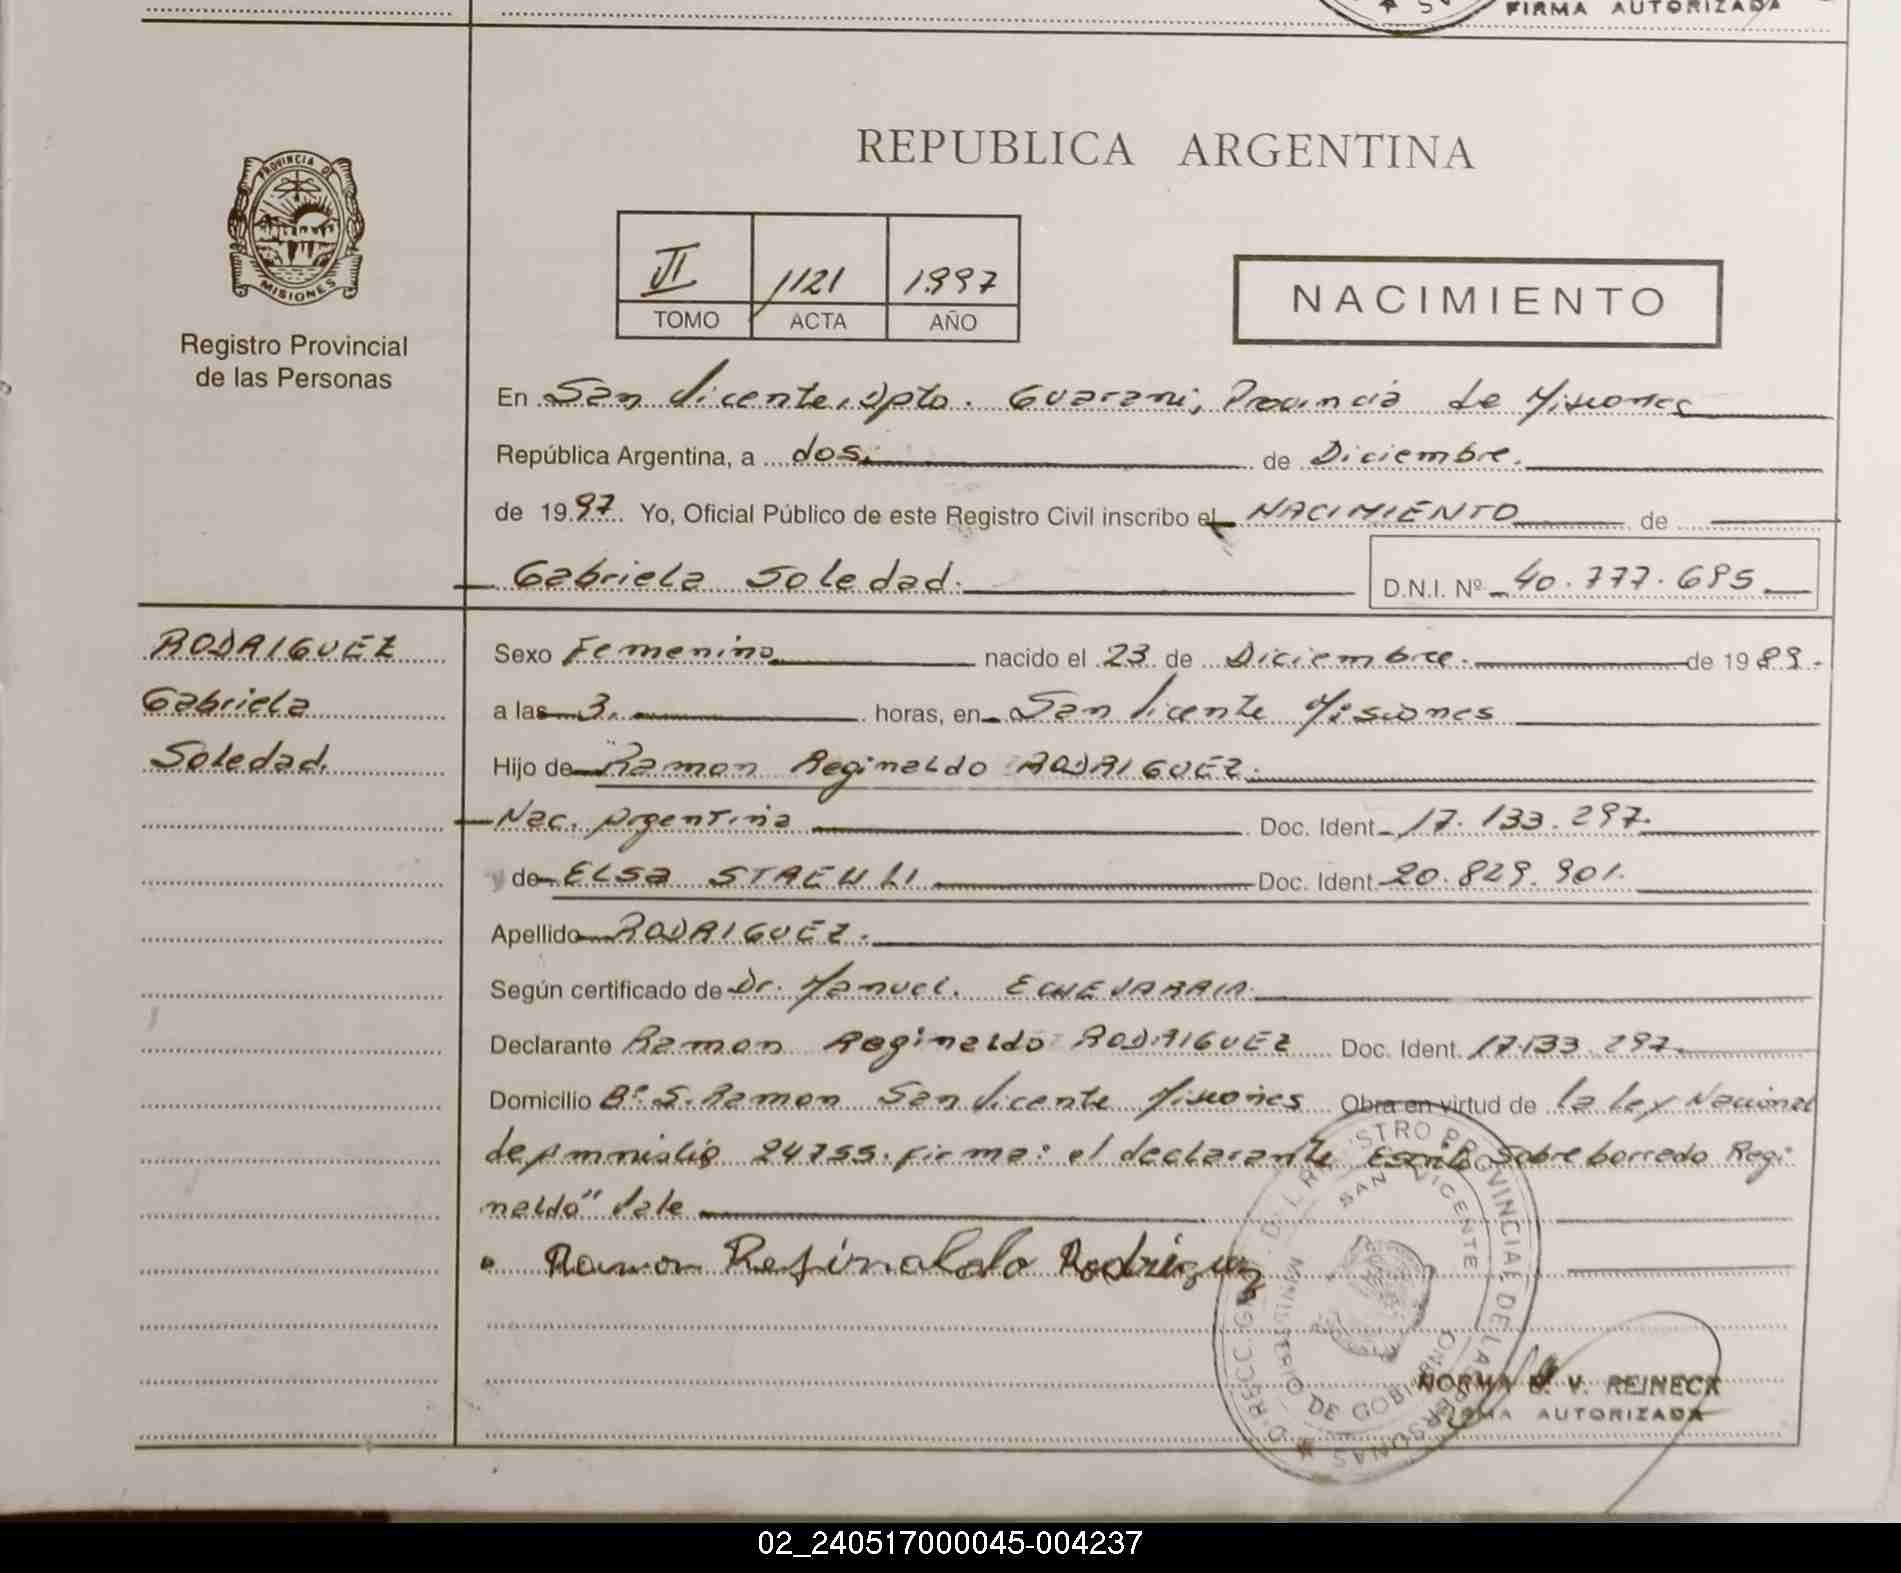 FIRMA AUTORIZADA
REPUBLICA ARGENTINA
PROVINCIA DE
MISIONES
Registro Provincial
de las Personas
II 1121 1997
TOMO ACTA AÑO
NACIMIENTO
En San Vicente, Dpto. Guarani, Provincia de Misiones
República Argentina, a dos. de Diciembre.
de 1997. Yo, Oficial Público de este Registro Civil inscribo el NACIMIENTO de
Gabriela Soledad. D.N.I. Nº 40.777.685
RODRIGUEZ
Gabriela
Soledad.
Sexo Femenino nacido el 23 de Diciembre. de 1989.
a las 3. horas, en San Vicente Misiones
Hijo de Ramon Reginaldo RODRIGUEZ.
Nac. Argentina Doc. Ident 17.133.297.
y de ELSA STAEHLI Doc. Ident. 20.829.901.
Apellido RODRIGUEZ.
Según certificado de Dr. Manuel. ECHEVARRIA.
Declarante Ramon Reginaldo RODRIGUEZ Doc. Ident. 17.133.297.
Domicilio Bº S. Ramon San Vicente Misiones Obra en virtud de la Ley Nacional
de Amnistia 24755. firma: el declarante Escrito Sobreborrado Regi
naldo" Vale
Ramon Reginaldo Rodriguez
REGISTRO PROVINCIAL DE LAS PERSONAS
SAN VICENTE
MINISTERIO DE GOBIERNO
NORMA V. REINECK
FIRMA AUTORIZADA
02_240517000045-004237